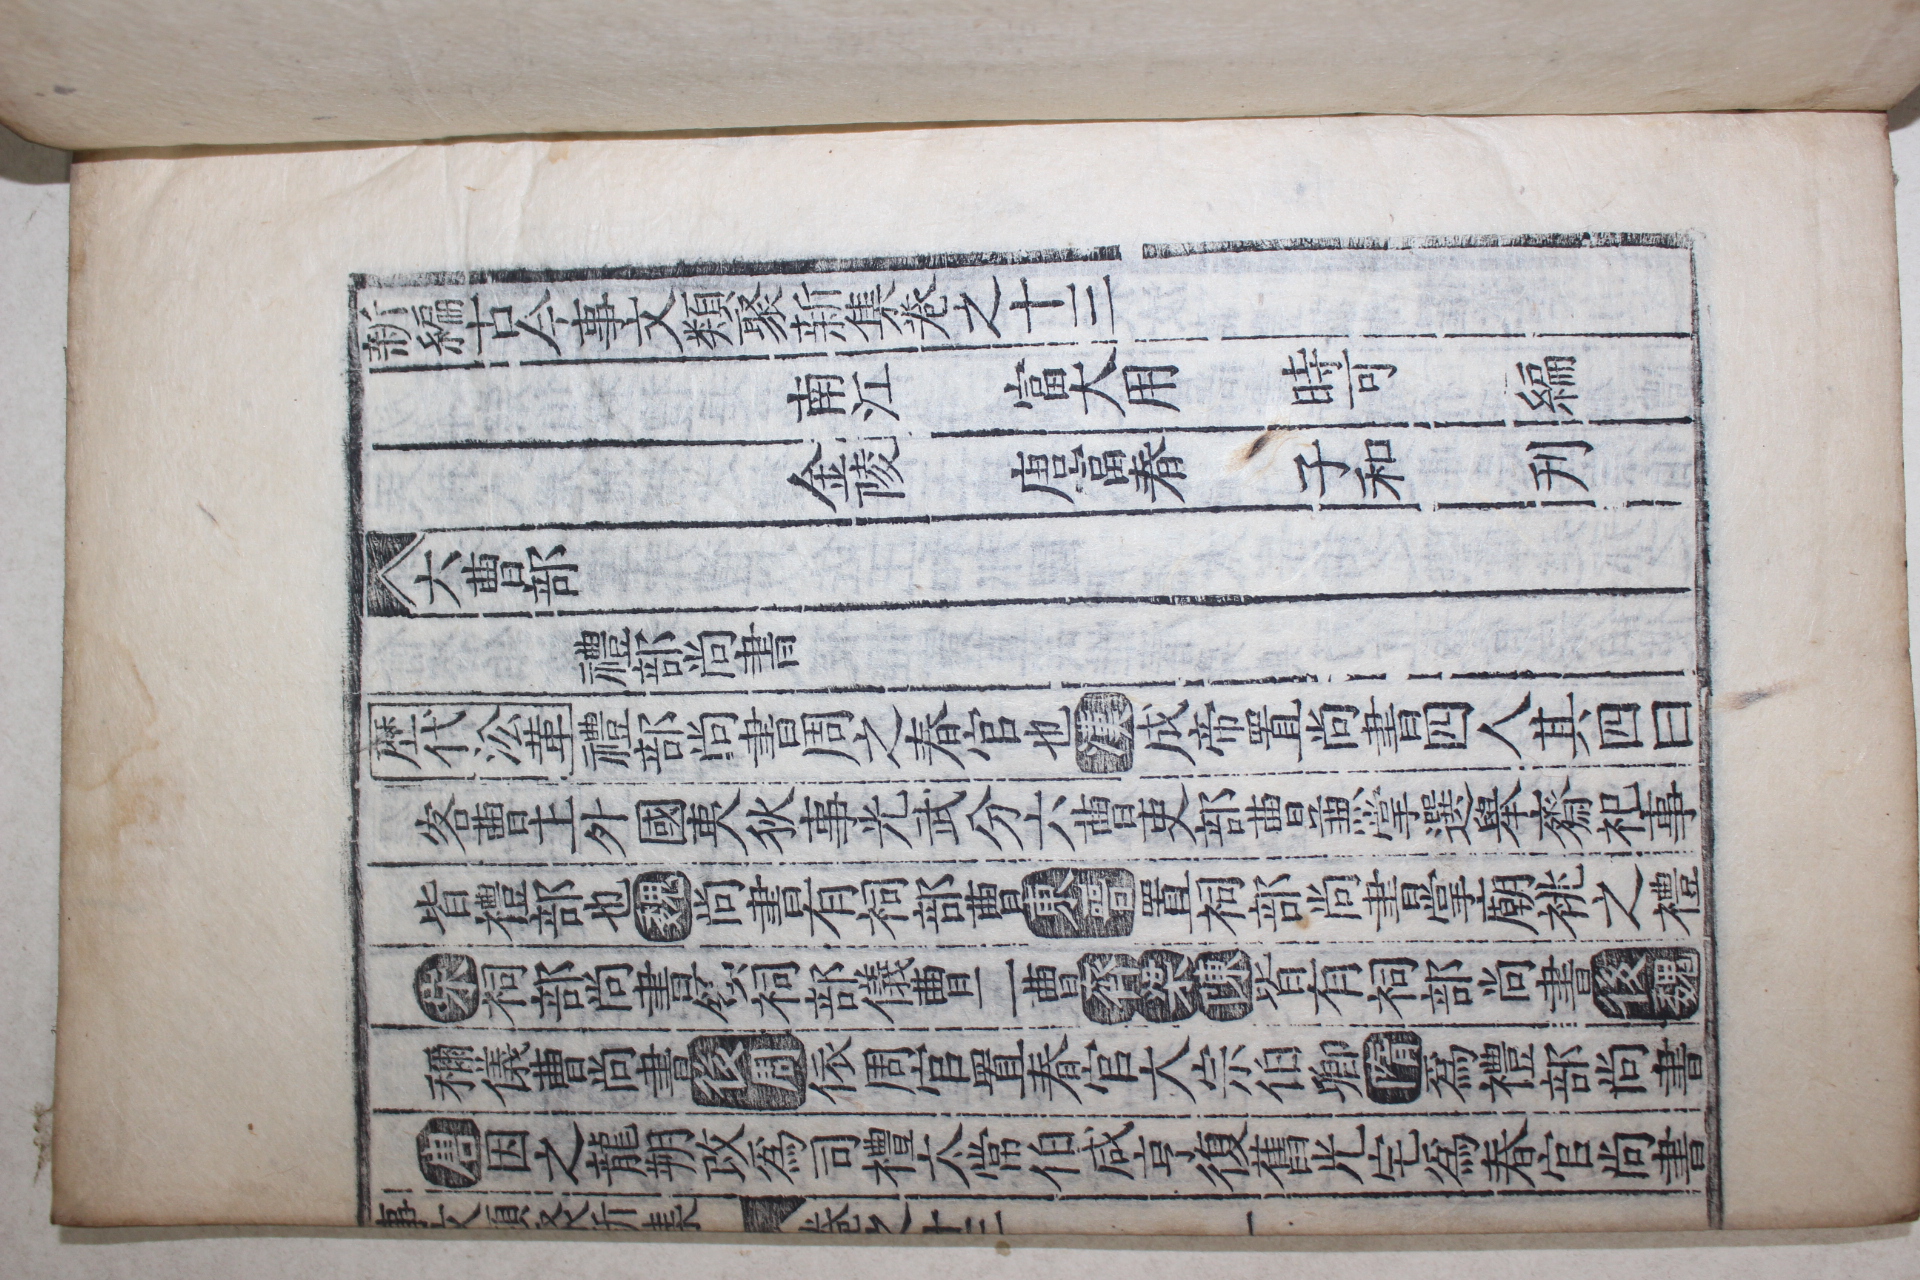 新編古今事文類聚新集卷之十三
南江 富大用 時可 編
金陵 唐富春 子和 刋
六曹部
禮部尚書
歷代沿革禮部尚書周之春官也漢成帝置尚書四人其四曰
客曹主外國夷狄事光武分六曹吏部曹兼掌選舉齋祀事
皆禮部也魏尚書有祠部曹東晉置祠部尚書掌廟祧之禮
宋祠部尚書領祠部儀曹二曹齊梁陳皆有祠部尚書後魏
稱儀曹尚書後周依周官置春官大宗伯卿隋爲禮部尚書
唐因之龍朔改爲司禮太常伯咸亨復舊光宅爲春官尚書
事文類聚新集 卷之十三 一